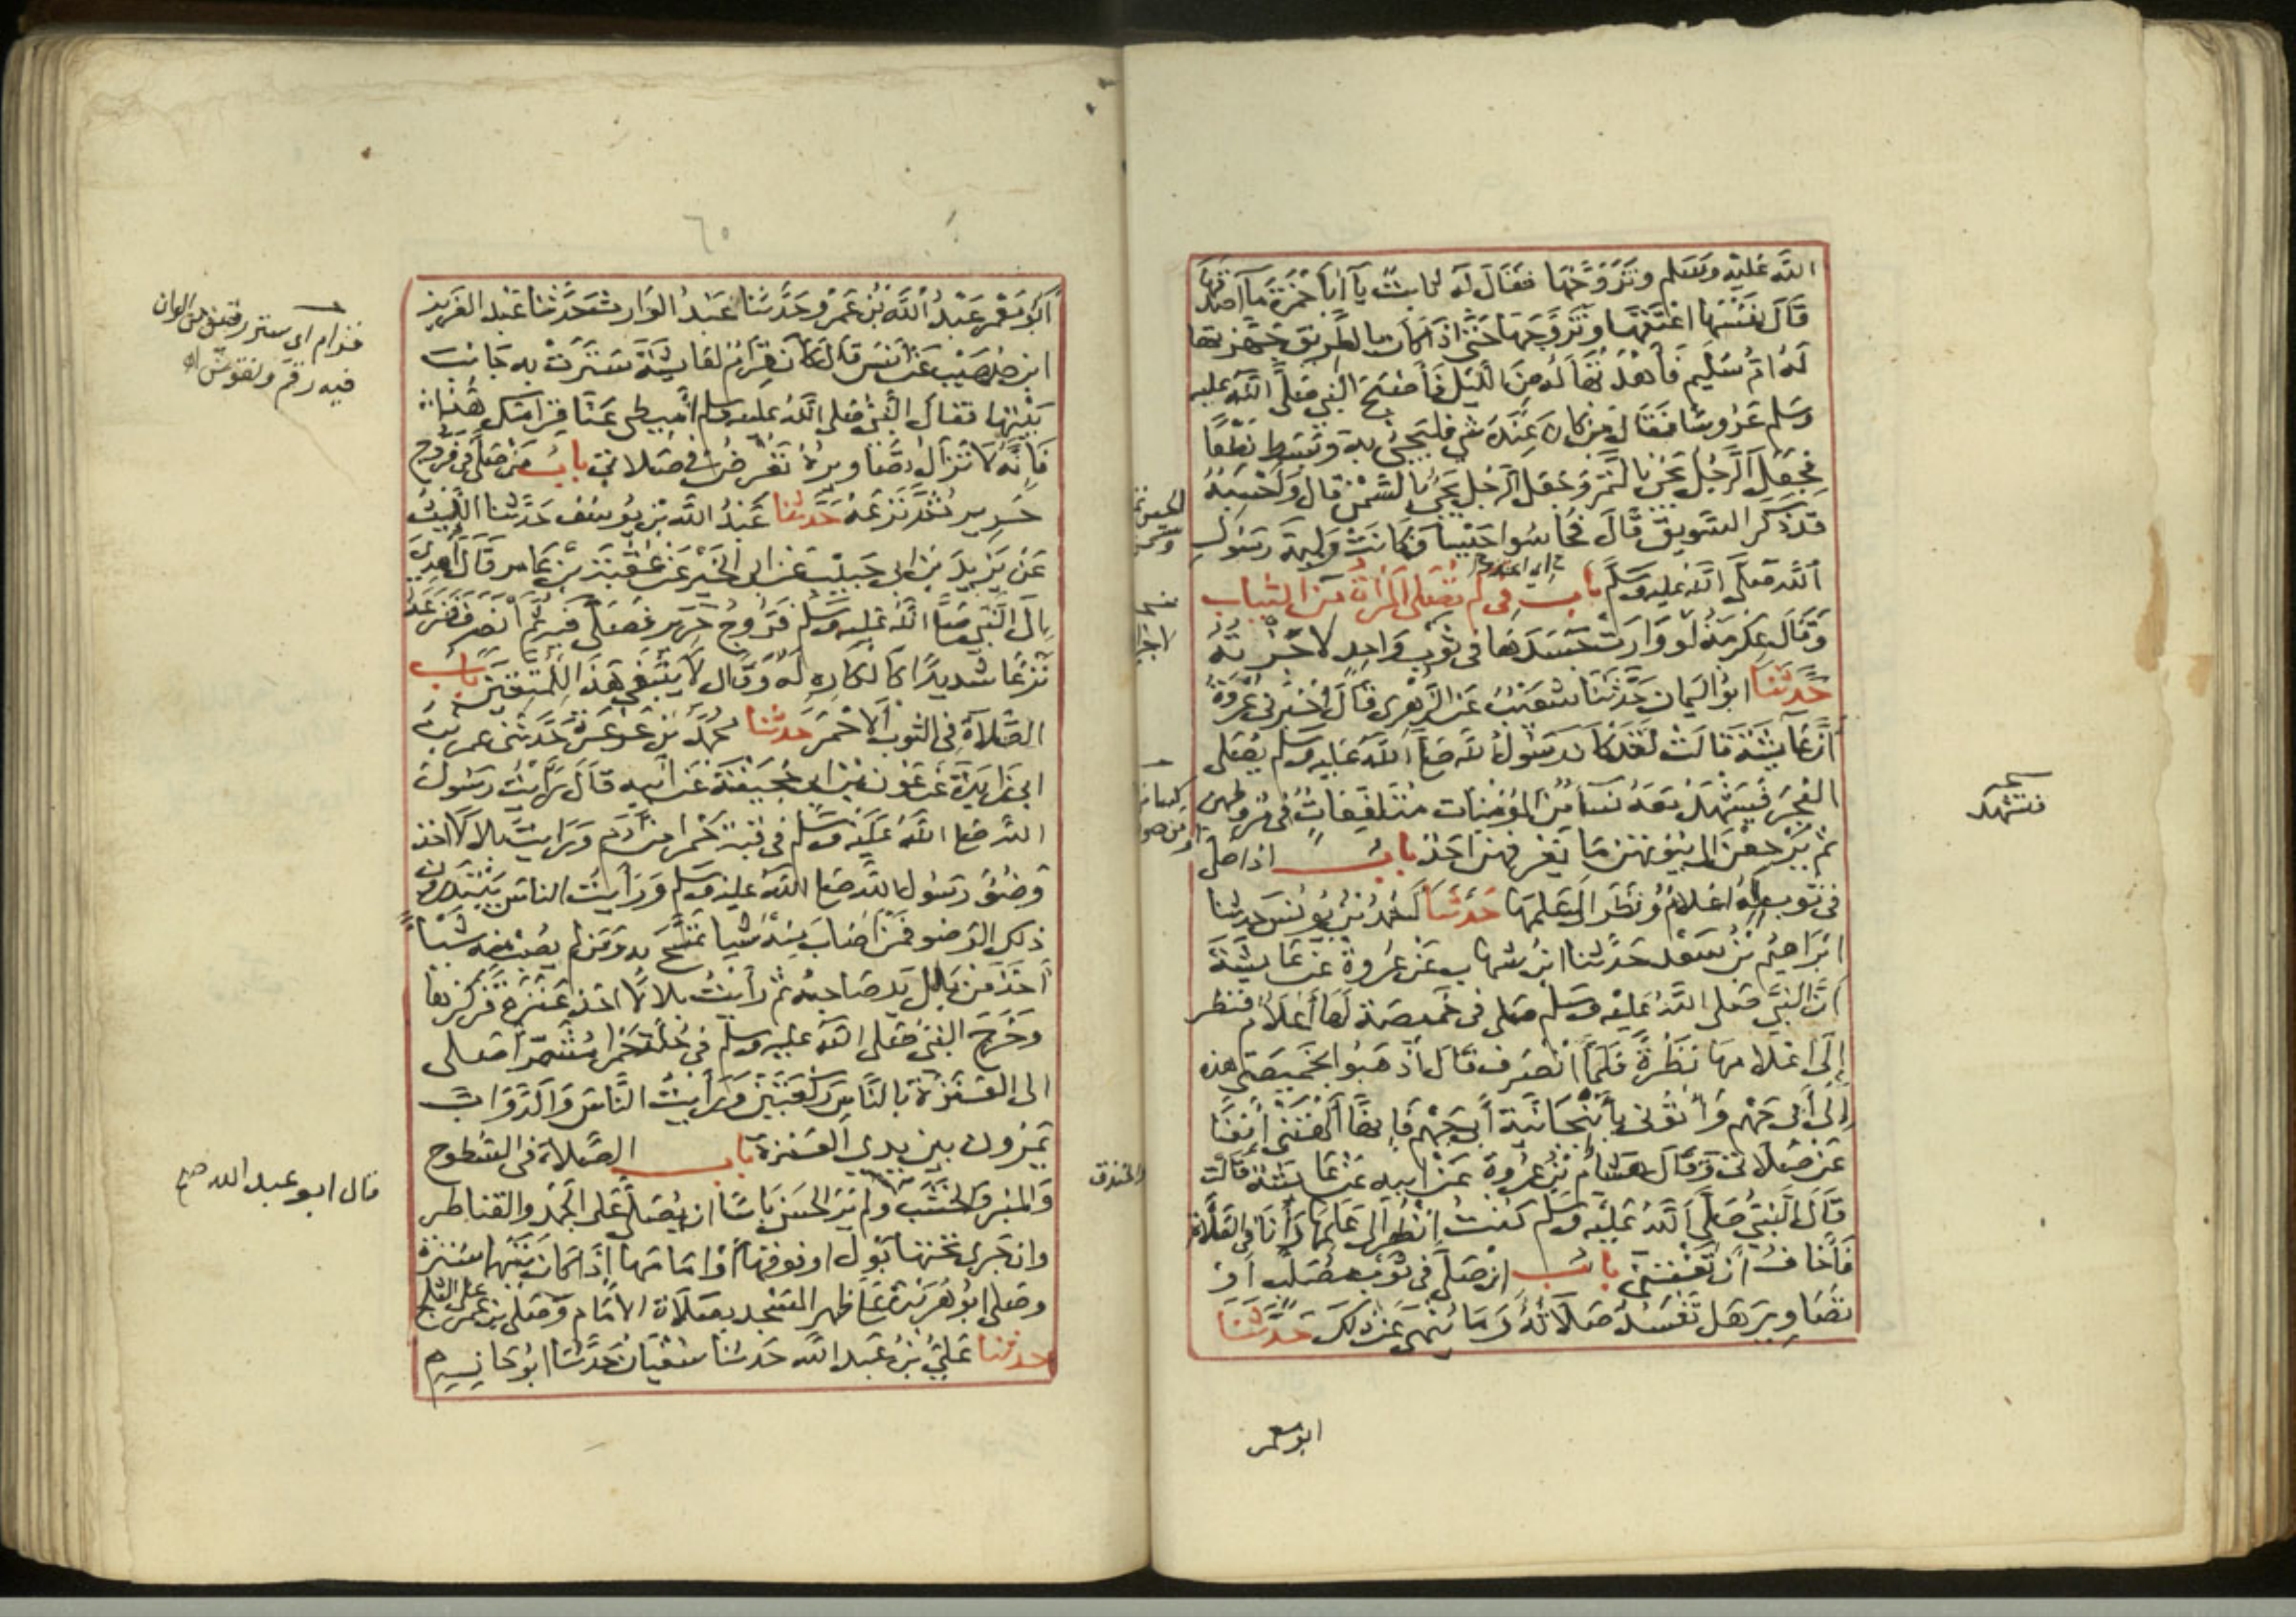 الله عليه وسلم وتزوجها فقال له ثابت يا ابا حمزة ما اصدقها
قال نفسها اعتقها وتزوجها حتى اذا كان بالطريق جهزتها
له ام سليم فأهدتها له من الليل فأصبح النبي صلى الله عليه
وسلم عروسا فقال من كان عنده شي فليجي به وبسط نطعا
فجعل الرجل يجئ بالتمر وجعل الرجل يجئ بالسمن قال واحسبه
قد ذكر السويق قال فحاسوا حيسا فكانت وليمة رسول
الله صلى الله عليه وسلم باب في كم تصلى المرأة من الثياب
وقال عكرمة لو وارت جسدها في ثوب واحد لاجزته
حدثنا ابو اليمان حدثنا شعيب عن الزهرى قال اخبرنى عروة
أن عايشة قالت لقد كان رسول الله صلى الله عليه وسلم يصلى
الفجر فيشهد معه نساء من المؤمنات متلفعات في مروطهن
ثم يرجعن الى بيوتهن ما يعرفهن احد باب اذا صلى
في ثوب له اعلام ونظر الى علمها حدثنا احمد بن يونس حدثنا
ابراهيم بن سعد حدثنا ابن شهاب عن عروة عن عايشة
أن النبي صلى الله عليه وسلم صلى فى خميصة لها أعلام فنظر
إلى اعلامها نظرة فلما انصرف قال أذهبوا بخميصتى هذه
إلى أبى جهم وأتونى بأنبجانية أبى جهم فإنها ألهتنى آنفا
عن صلاتى وقال هشام بن عروة عن ابيه عن عايشة قالت
قال النبي صلى الله عليه وسلم كنت انظر الى علمها وأنا فى الصلاة
فأخاف أن تفتننى باب ان صلى فى ثوب مصلب أو
تصاوير هل تفسد صلاته وما ينهى عن ذلك حدثنا
فتشهد
ابو معمر
أبو معمر عبد الله بن عمرو حدثنا عبد الوارث حدثنا عبد العزيز
ابن صهيب عن أنس قال كان قرام لعايشة سترت به جانب
بيتها فقال النبي صلى الله عليه وسلم أميطى عنا قرامك هذا
فانه لا تزال تصاويره تعرض في صلاتى باب من صلى فى فروج
حرير ثم نزعه حدثنا عبد الله بن يوسف حدثنا الليث
عن يزيد بن ابى حبيب عن ابى الخير عن عقبة بن عامر قال أهدى
الى النبي صلى الله عليه وسلم فروج حرير فصلى فيه ثم انصرف فنزعه
نزعا شديدا كالكاره له وقال لا ينبغى هذا للمتقين باب
الصلاة فى الثوب الاحمر حدثنا محمد بن عرعرة حدثنى عمر بن
ابى زايدة عن عون بن ابى جحيفة عن أبيه قال رأيت رسول
الله صلى الله عليه وسلم فى قبة حمرا من أدم ورايت بلالا اخذ
وضوء رسول الله صلى الله عليه وسلم ورأيت الناس يبتدرون
ذلك الوضو فمن أصاب منه شيا تمسح به ومن لم يصب منه شيأ
أخذ من بلل يد صاحبه ثم رأيت بلالا اخذ عنزة فركزها
وخرج النبي صلى الله عليه وسلم فى حلة حمرا مشمرا صلى
الى العنزة بالناس ركعتين ورأيت الناس والدواب
يمرون بين يدى العنزة باب الصلاة فى السطوح
والمنبر والخشب ولم ير الحسن باسا ان يصلى على الجمد والقناطر
وان جرى تحتها بول او فوقها أو امامها إذا كان بينهما سترة
وصلى ابو هريرة على ظهر المسجد بصلاة الامام وصلى بن عمر على الثلج
حدثنا على بن عبد الله حدثنا سفيان حدثنا ابو حازم
قرام اى ستر رقيق من الوان
فيه رقم ونقوش اه
قال ابو عبد الله صح
والخندق